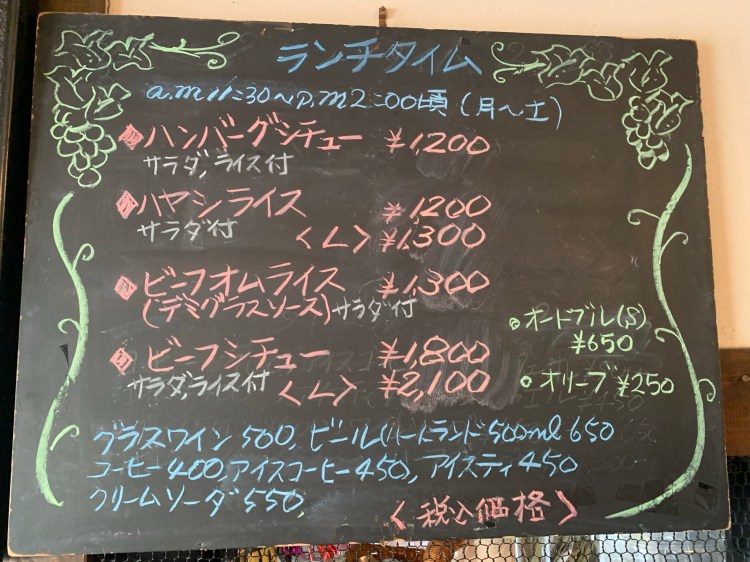 ランチタイム
a.m11:30〜p.m2:00頃(月〜土)
ハンバーグシチュー ¥1,200
サラダ,ライス付
ハヤシライス ¥1,200
サラダ付 <L> ¥1,300
ビーフオムライス ¥1,300
(デミグラスソース)サラダ付
オードブル(S)
¥650
ビーフシチュー ¥1,800
サラダ,ライス付 <L> ¥2,100
オリーブ ¥250
グラスワイン500, ビール(ハートランド500ml 650
コーヒー400,アイスコーヒー450, アイスティ450
クリームソーダ550,
<税込価格>